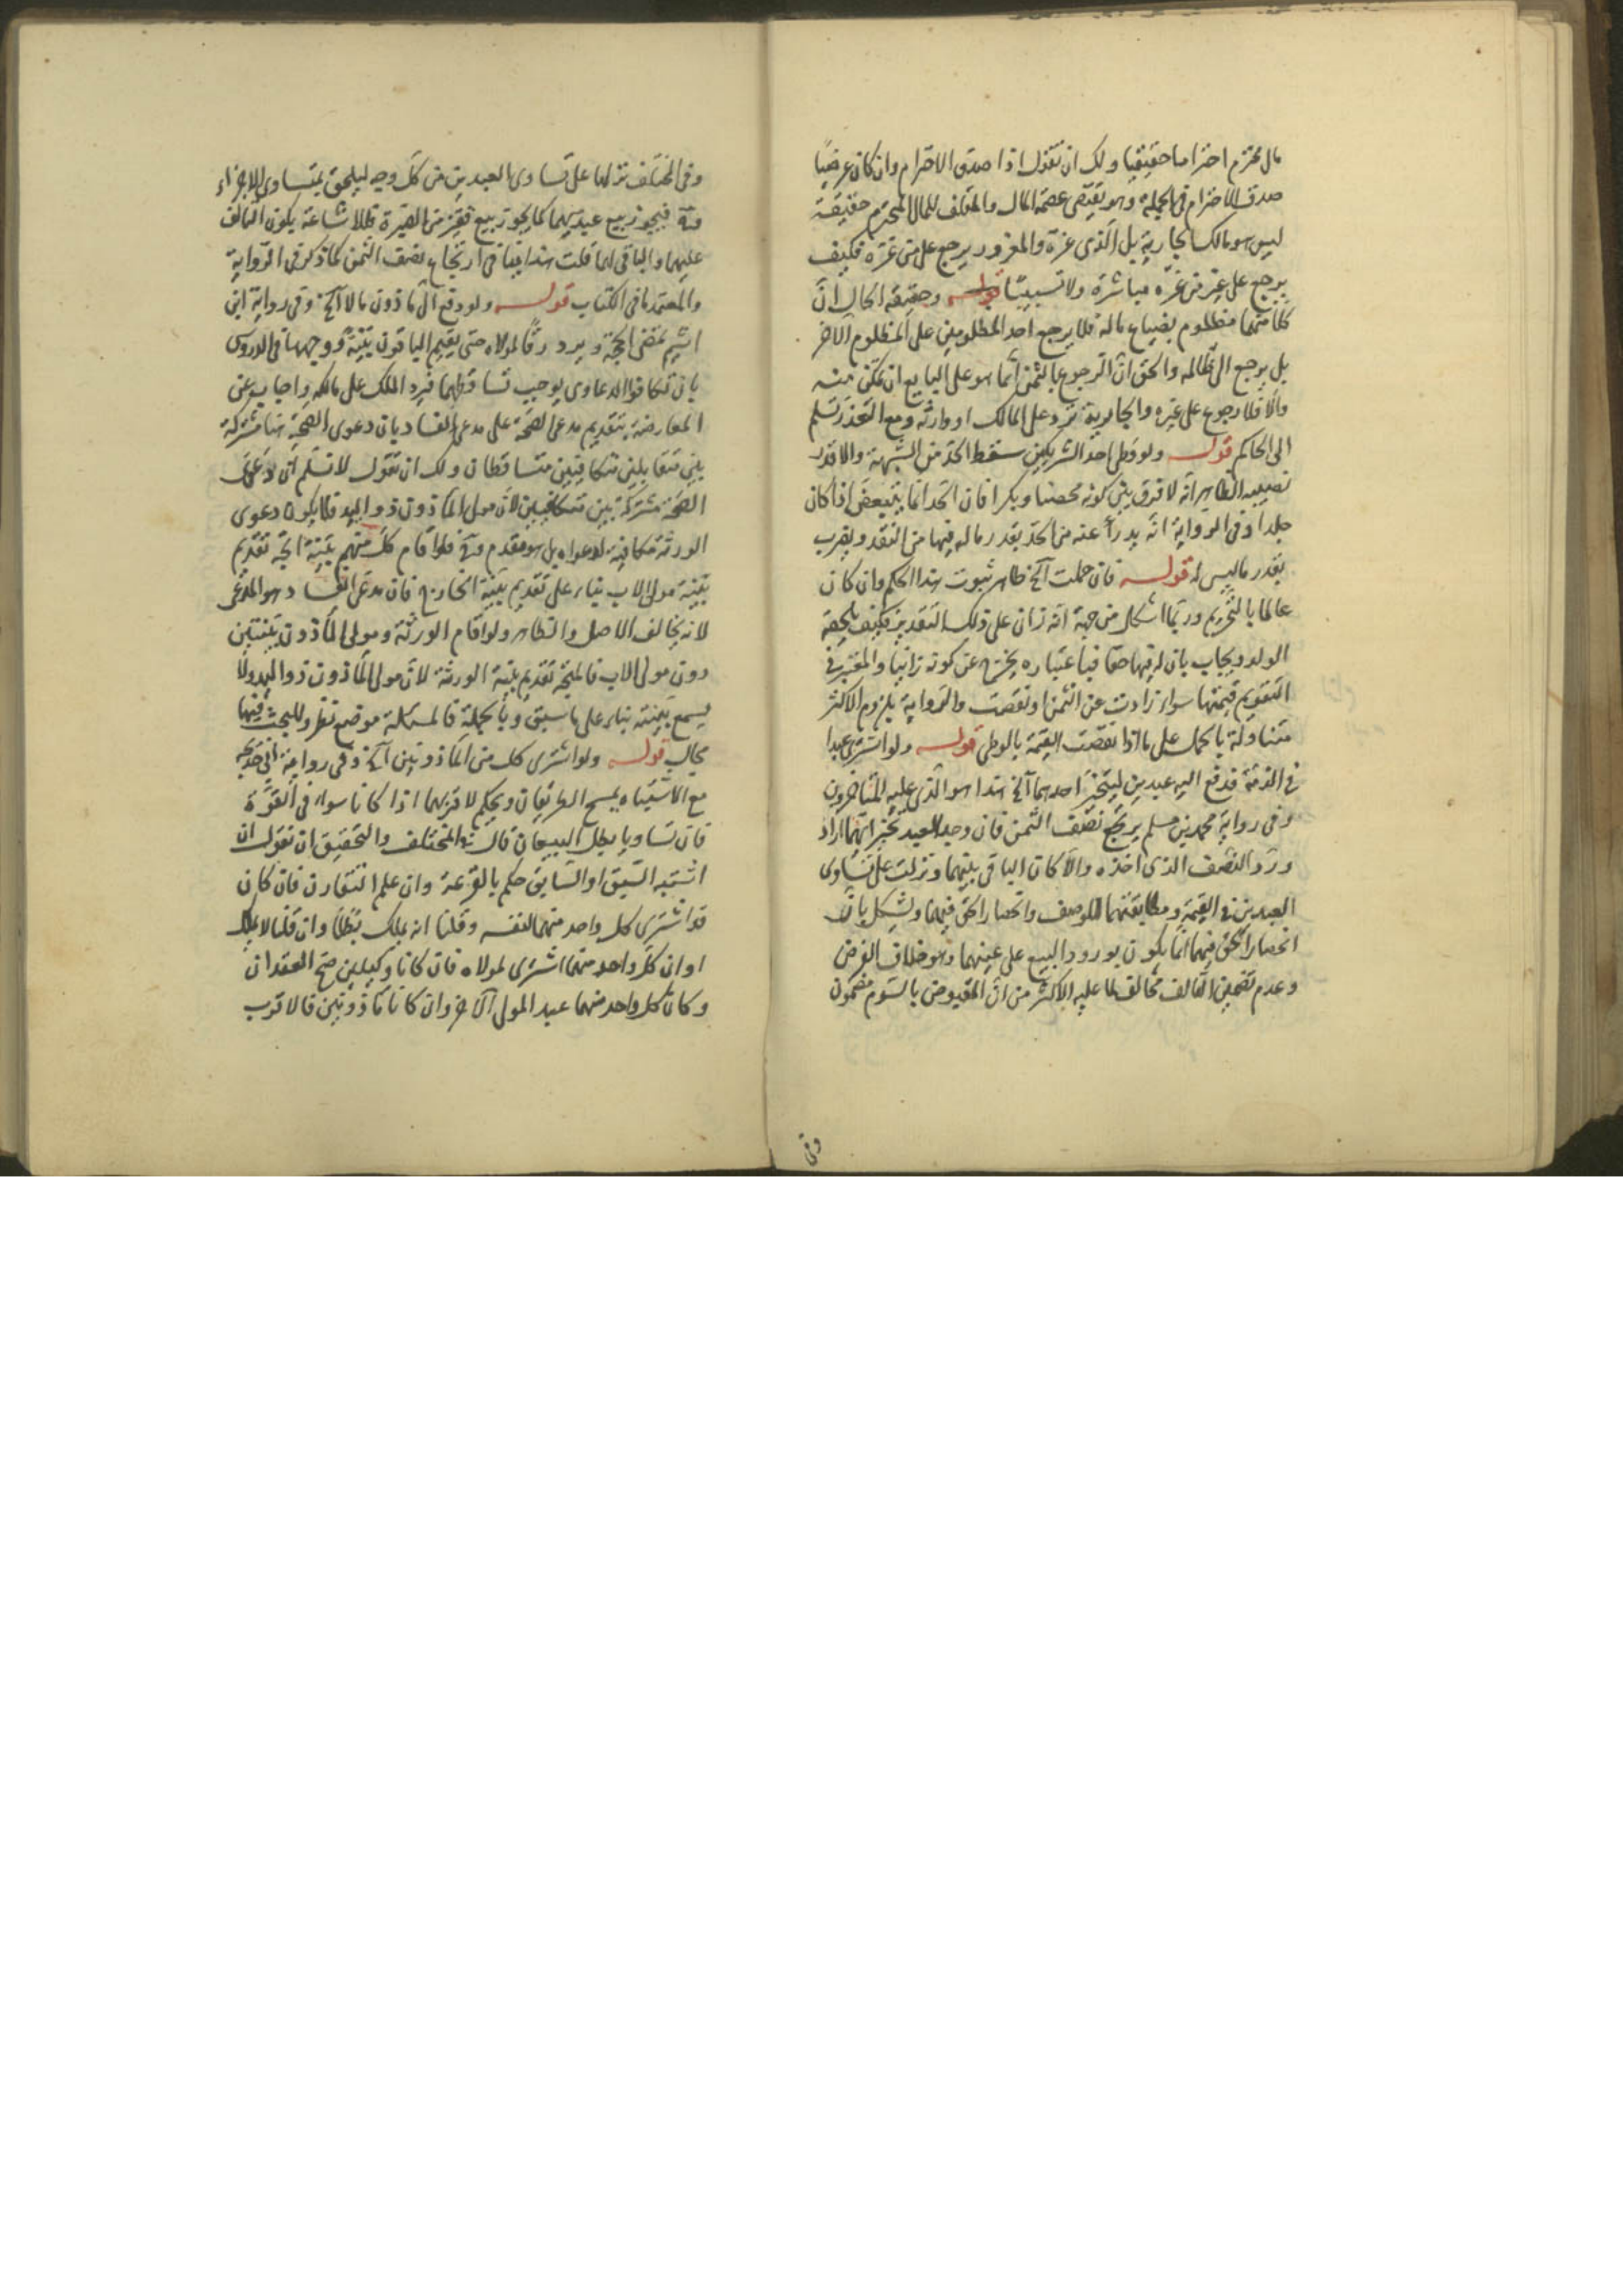 مال محترم احتراما حقيقيا ولك ان تقول اذا صدق الاحترام وان كان عرضيا
صدق الاحترام فى الجملة وهو يقتضى عصمة المال والمتلف للمال المحترم حقيقة
ليس هو مالك الجارية بل الذى غره والمغرور يرجع على من غره فكيف
يرجع على غير من غره مباشرة ولا تسبيبا قوله وحقيقة الحال ان
كلا منهما مظلوم بضياع ماله فلا يرجع احد المظلومين على المظلوم الاخر
بل يرجع الى ظالمه والحق ان الرجوع بالثمن انما هو على البايع ان تمكن منه
والا فلا رجوع على غيره والجارية ترد على المالك او وارثه ومع التعذر تسلم
الى الحاكم قوله ولو وطى احد الشريكين سقط الحد مع الشبهة والا قدر
نصيبه الظاهر انه لا فرق بين كونه محصنا وبكرا فان الحد انما يتبعض اذا كان
جلدا وفى الرواية انه يدرأ عنه من الحد بقدر ما له فيها من النقد ويضرب
بقدر ما ليس له قوله فان حملت آلخ ظاهر ثبوت هذا الحكم وان كان
عالما بالتحريم وربما اشكل من جهة انه زان على ذلك التقدير فكيف يلحقه
الولد ويجاب بان له فيها حقا فباعتباره يخرج عن كونه زانيا والمعتبر فى
التقويم قيمتها سواء زادت عن الثمن او نقصت والرواية بلزوم الاكثر
متناولة بالحمل على ما اذا نقصت القيمة بالوطى قوله ولو اشترى عبدا
فى الذمة فدفع اليه عبدين ليتخير احدهما آلخ هذا هو الذى عليه المتاخرون
وفى رواية محمد بن مسلم يرتجع نصف الثمن فان وجد العبد تخير ايهما اراد
ورد النصف الذى اخذه والا كان الباقى بينهما ونزلت على تساوى
العبدين فى القيمة ومطابقتهما للوصف وانحصار الحق فيهما ويشكل بان
انحصار الحق فيهما انما يكون بورود البيع على عينهما وهو خلاف الفرض
وعدم تضمين التالف مخالف لما عليه الاكثر من ان المقبوض بالسوم مضمون
وفى
وفى المختلف نزلها على تساوى العبدين من كل وجه ليلحق بمتساوى الاجزاء
فيجوز بيع عبد منهما كما يجوز بيع قفيز من الصبرة فللاشاعة يكون التالف
عليهما والباقى لهما قلت هذا ينافى ارتجاع نصف الثمن كما ذكر فى الرواية
والمعتمد ما فى الكتاب قوله ولو دفع الى ماذون مالا آلخ وفى رواية ابن
اشيم تمضى الحجة ويرد رقا لمولاه حتى يقيم الباقون بينة ووجهها فى الدروس
بان تكافوا الدعاوى يوجب تساقطها فيرد الملك على مالكه واجاب عن
المعارضة بتقديم مدعى الصحة على مدعى الفساد بان دعوى الصحة هنا مشتركة
بين متقابلين متكافيين متساقطان ولك ان تقول لا نسلم ان دعوى
الصحة مشتركة بين متكافيين لان مولى الماذون ذو اليد فلا يكون دعوى
الورثة مكافية لدعواه بل هو مقدم فلو اقام كل منهم بينة اتجه تقديم
بينة مولى الاب بناء على تقديم بينة الخارج فان مدعى الفساد هو المدعى
لانه يخالف الاصل والظاهر ولو اقام الورثة ومولى الماذون بينتين
دون مولى الاب فالمتجه تقديم بينة الورثة لان مولى الماذون ذو اليد ولا
يسمع بينته بناء على ما سبق وبالجملة فالمسئلة موضع نظر وللبحث فيها
مجال قوله ولو اشترى كل من الماذونين آلخ وفى رواية ابى خديجة
مع الاشتباه يمسح الطريقان ويحكم لاقربهما اذا كانا سواء فى القوة
فان تساويا بطل البيعان قال فى المختلف والتحقيق ان نقول ان
اشتبه السبق او السابق حكم بالقرعة وان علم التقارن فان كان
قد اشترى كل واحد منهما لنفسه وقلنا انه يملك بطلا وان قلنا لا يملك
او ان كل واحد منهما اشترى لمولاه فان كانا وكيلين صح العقدان
وكان كل واحد منهما عبد المولى الاخر وان كانا ماذونين فالاقرب